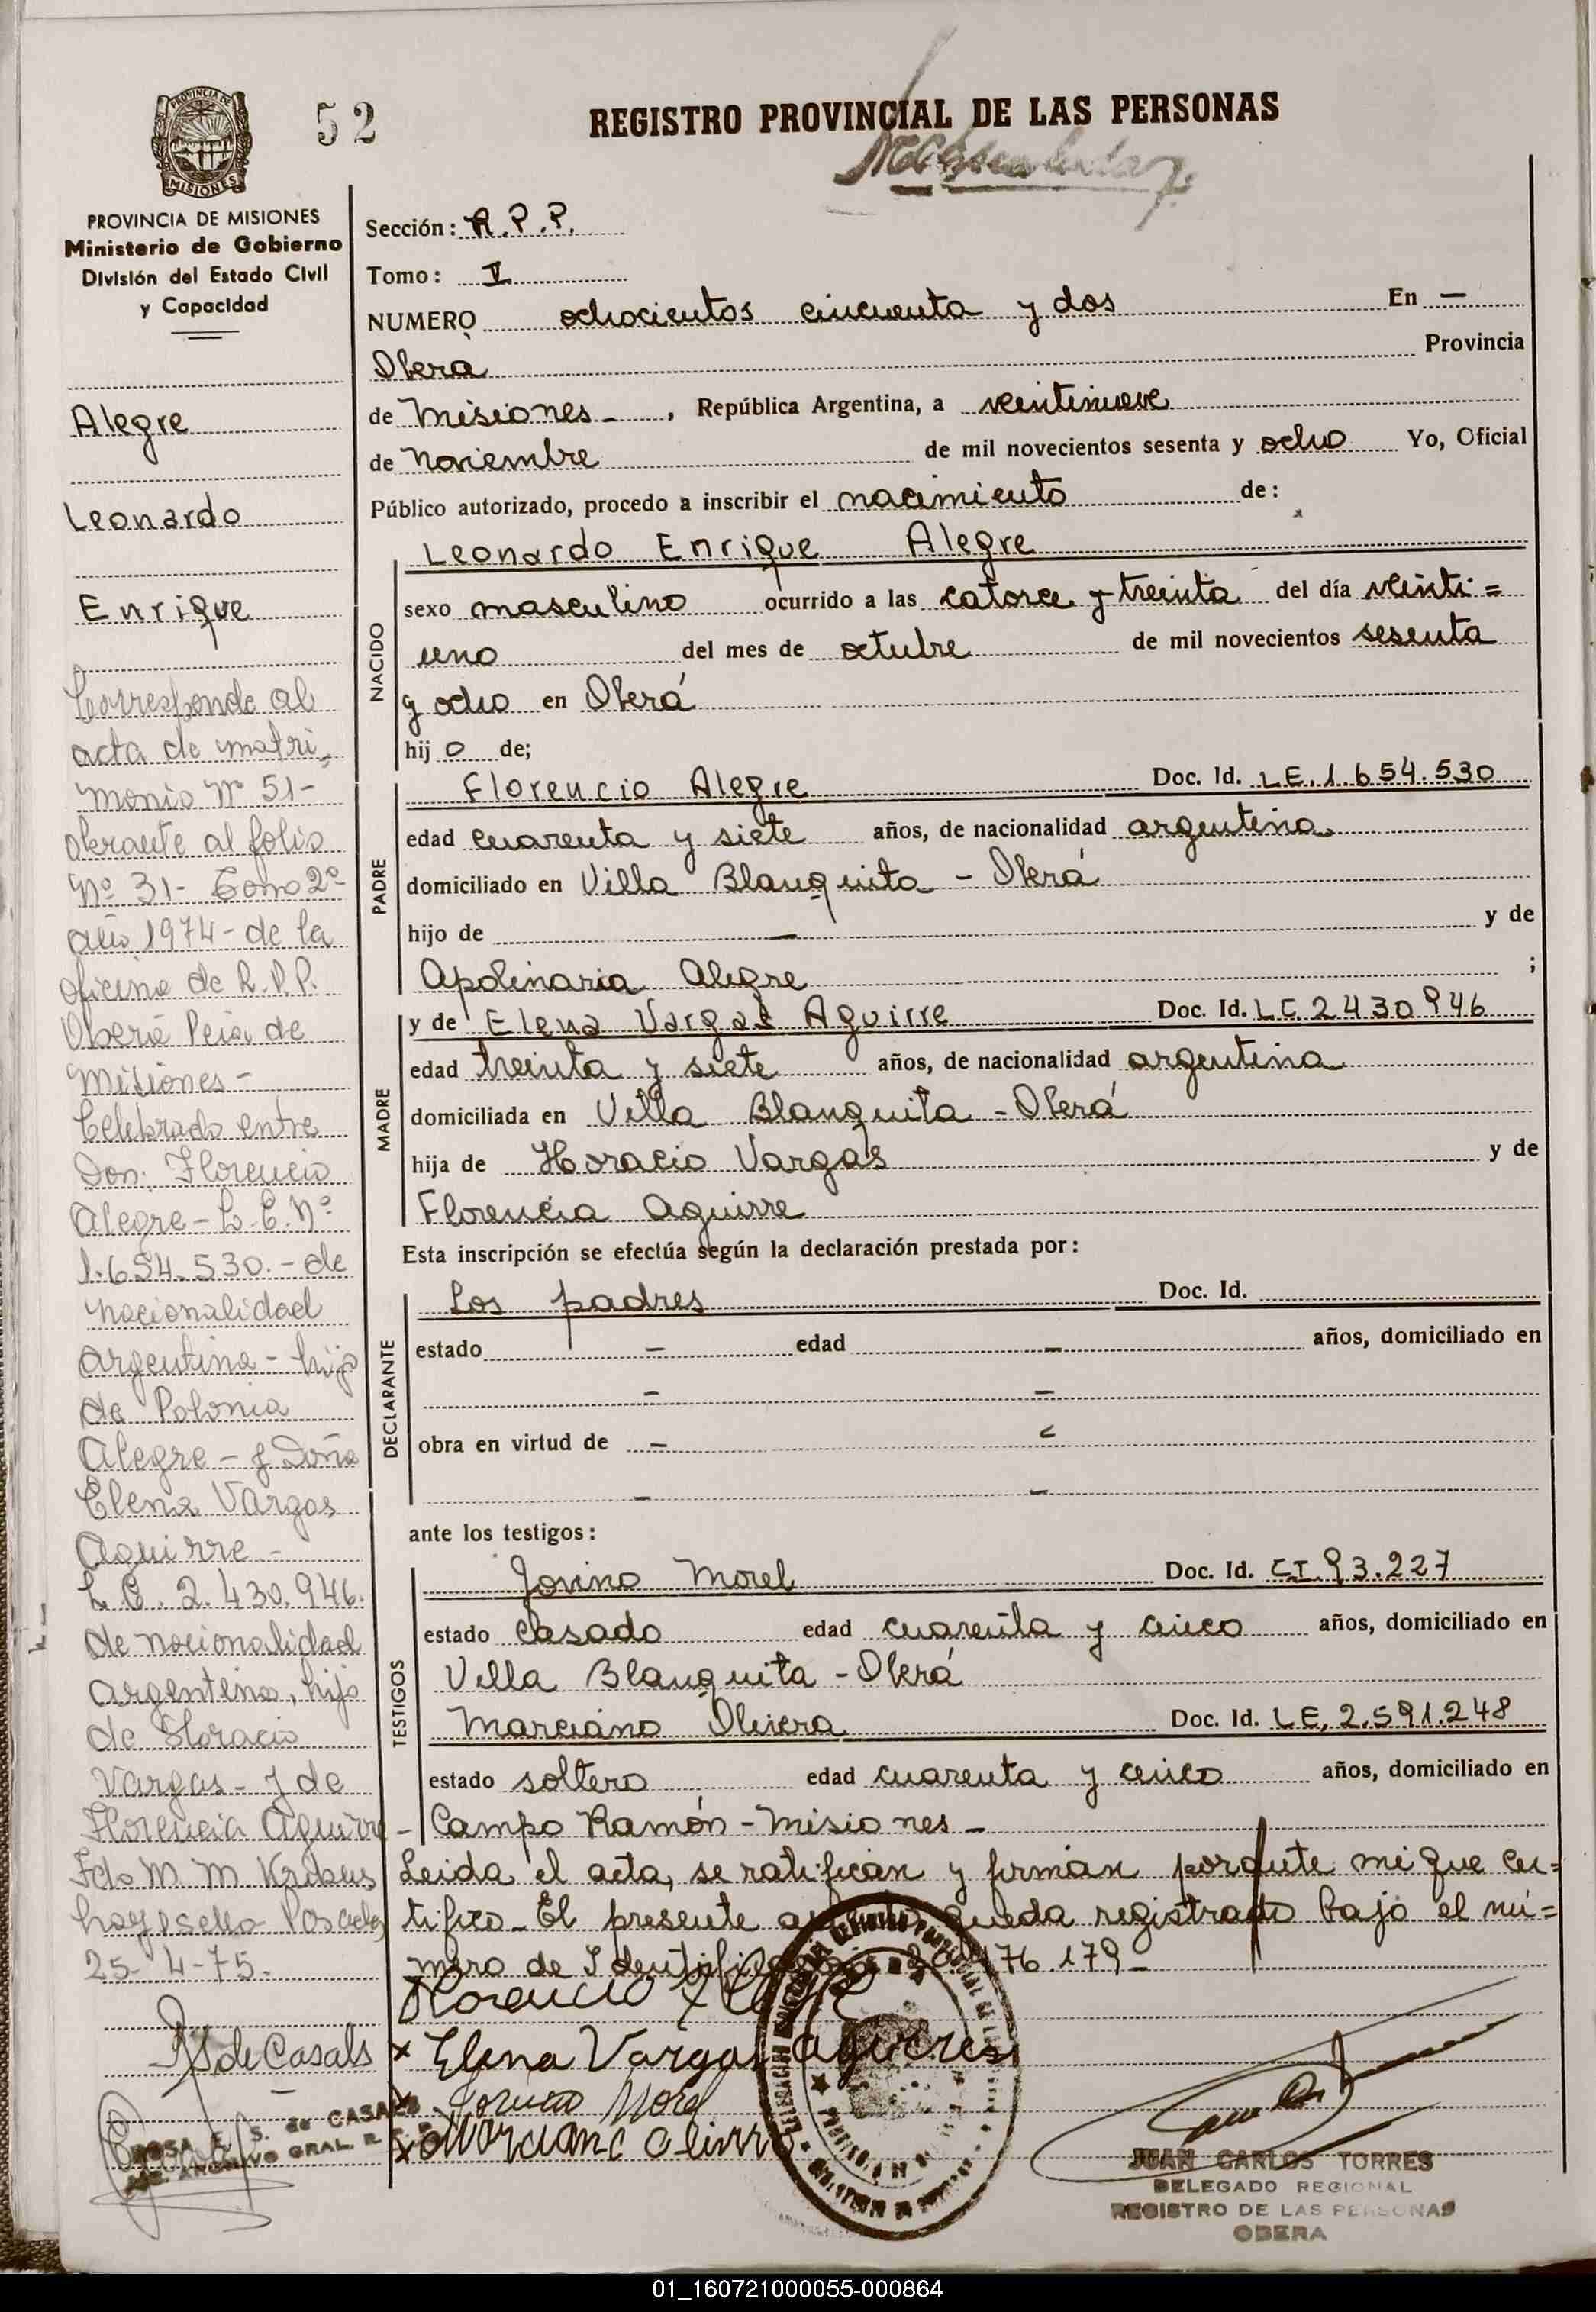 52
REGISTRO PROVINCIAL DE LAS PERSONAS
PROVINCIA DE MISIONES
MISIONES
PROVINCIA DE MISIONES
Ministerio de Gobierno
División del Estado Civil
y Capacidad
Alegre
Leonardo
Enrique
Corresponde al
acta de matri-
monio Nº 51-
obrante al folio
Nº 31- Tomo 2º
año 1974- de la
oficina de R.P.P.
Oberá Pcia de
Misiones-
Celebrado entre
Don: Florencio
Alegre - L.E. Nº
1.654.530.- de
nacionalidad
argentina - hijo
de Polonia
Alegre - y Doña
Elena Vargas
Aguirre -
L.C. 2.430.946.
de nacionalidad
argentina, hija
de Horacio
Vargas - y de
Florencia Aguirre -
Fdo M. M.
hay sello Posadas
25-4-75.
S de Casals
ROSA E. S. de CASALS
ARCHIVO GRAL. R.
Sección: R.P.P.
Tomo: V
NUMERO ochocientos cincuenta y dos En —
Oberá Provincia
de Misiones - , República Argentina, a veintinueve
de Noviembre de mil novecientos sesenta y ocho Yo, Oficial
Público autorizado, procedo a inscribir el nacimiento de:
Leonardo Enrique Alegre
NACIDO
sexo masculino ocurrido a las catorce y treinta del día veinti=
uno del mes de octubre de mil novecientos sesenta
y ocho en Oberá
hijo de;
PADRE
Florencio Alegre Doc. Id. L.E. 1.654.530
edad cuarenta y siete años, de nacionalidad argentina
domiciliado en Villa Blanquita - Oberá
hijo de — y de
Apolinaria Alegre ;
MADRE
y de Elena Vargas Aguirre Doc. Id. L.C. 2430946
edad treinta y siete años, de nacionalidad argentina
domiciliada en Villa Blanquita - Oberá
hija de Horacio Vargas y de
Florencia Aguirre
Esta inscripción se efectúa según la declaración prestada por:
DECLARANTE
Los padres Doc. Id.
estado — edad — años, domiciliado en
— —
obra en virtud de —
— —
ante los testigos:
TESTIGOS
Jovino Morel Doc. Id. C.I. 93.227
estado casado edad cuarenta y cinco años, domiciliado en
Villa Blanquita - Oberá
Marciano Olivera Doc. Id. L.E. 2.591.248
estado soltero edad cuarenta y cinco años, domiciliado en
Campo Ramón - Misiones -
Leida el acta, se ratifican y firman por ante mi que cer=
tifico - El presente queda registrado bajo el nú=
mero de 176.179 -
Florencio Alegre
x Elena Vargas
Morel
x Marciano
JUAN CARLOS TORRES
DELEGADO REGIONAL
REGISTRO DE LAS PERSONAS
OBERA
01_160721000055-000864